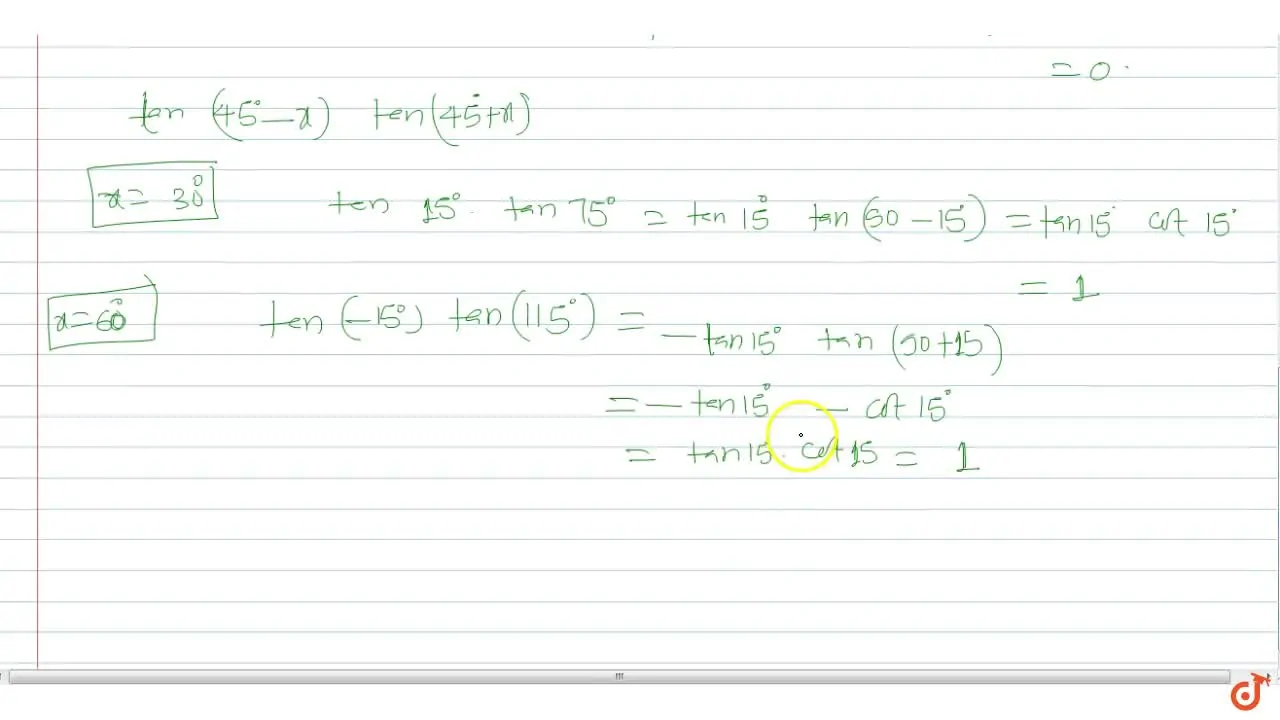 = 0
tan (45° - x) tan (45° + x)
x = 30°
tan 15° tan 75° = tan 15° tan (90 - 15) = tan 15° cot 15°
= 1
x = 60°
tan (-15°) tan (115°) =
- tan 15° tan (90+15)
= - tan 15° - cot 15°
= tan 15 . cot 15 = 1